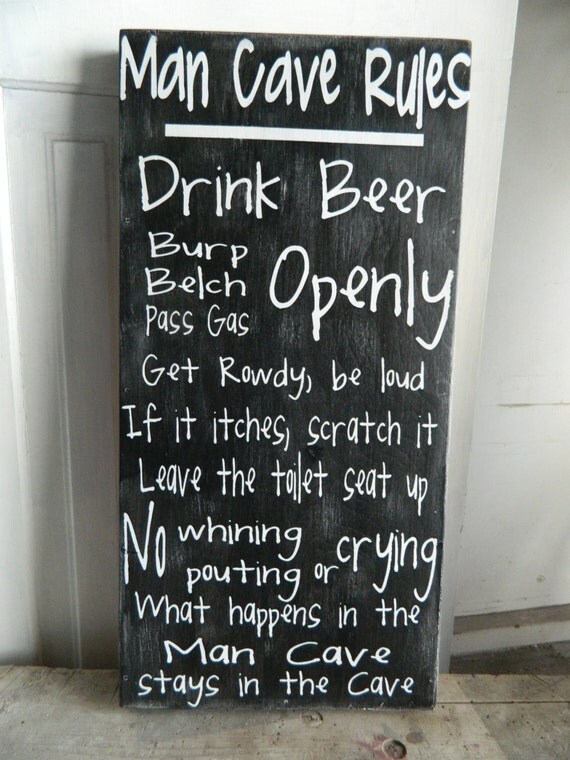 Man Cave Rules
Drink Beer
Burp
Belch
Pass Gas
Openly
Get Rowdy, be loud
If it itches, scratch it
Leave the toilet seat up
No whining
pouting or crying
What happens in the
Man Cave
stays in the Cave